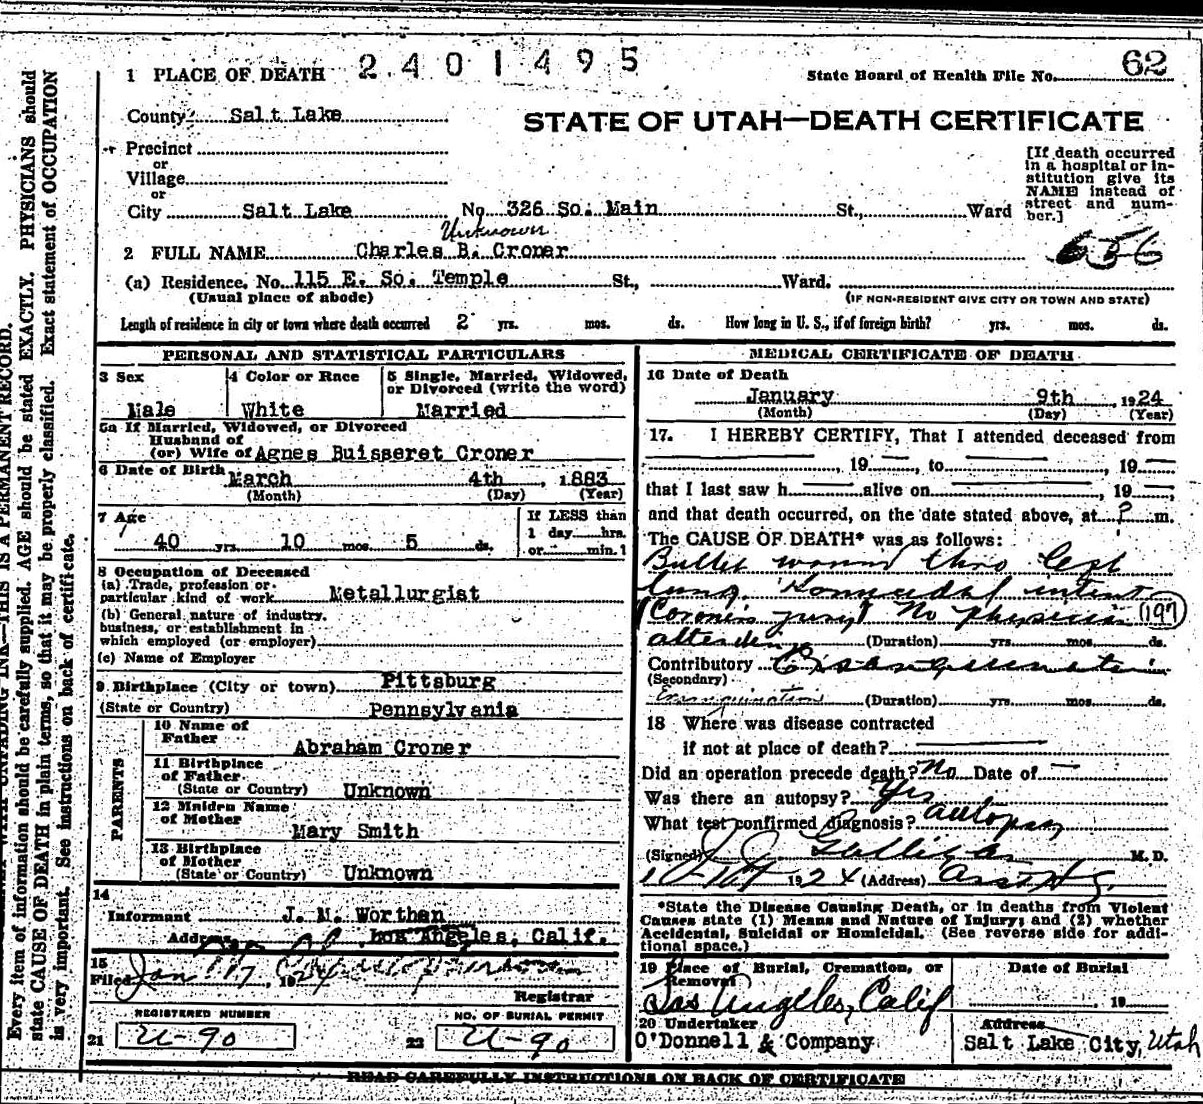 2401495
1 PLACE OF DEATH
State Board of Health File No. 62
County Salt Lake
STATE OF UTAH—DEATH CERTIFICATE
Precinct
or
Village
or
City Salt Lake No. 326 So. Main St., Ward
[If death occurred
in a hospital or in-
stitution give its
NAME instead of
street and num-
ber.]
Unknown
2 FULL NAME Charles B. Croner
656
(a) Residence. No. 115 E. So. Temple St., Ward.
(Usual place of abode)
(IF NON-RESIDENT GIVE CITY OR TOWN AND STATE)
Length of residence in city or town where death occurred 2 yrs. mos. ds. How long in U. S., if of foreign birth? yrs. mos. ds.
PERSONAL AND STATISTICAL PARTICULARS
3 Sex
Male
4 Color or Race
White
5 Single, Married, Widowed,
or Divorced (write the word)
Married
5a If Married, Widowed, or Divorced
Husband of
(or) Wife of Agnes Buisseret Croner
6 Date of Birth March 4th, 1883
(Month) (Day) (Year)
7 Age
40 yrs. 10 mos. 5 ds.
If LESS than
1 day hrs.
or min.
8 Occupation of Deceased
(a) Trade, profession or
particular kind of work Metallurgist
(b) General nature of industry,
business, or establishment in
which employed (or employer)
(c) Name of Employer
9 Birthplace (City or town) Pittsburg
(State or Country) Pennsylvania
PARENTS
10 Name of
Father
Abraham Croner
11 Birthplace
of Father
(State or Country) Unknown
12 Maiden Name
of Mother
Mary Smith
13 Birthplace
of Mother
(State or Country) Unknown
14
Informant J. M. Worthen
Address Los Angeles, Calif.
15
Filed Jan 17, 1924
Registrar
REGISTERED NUMBER
21 U-90
NO. OF BURIAL PERMIT
22 U-90
MEDICAL CERTIFICATE OF DEATH
16 Date of Death
January 9th 1924
(Month) (Day) (Year)
17. I HEREBY CERTIFY, That I attended deceased from
, 19 , to , 19
that I last saw h alive on , 19 ,
and that death occurred, on the date stated above, at ? m.
The CAUSE OF DEATH* was as follows:
Bullet wound thro left
lung. Homicidal intent
(Coronis jury) No physician 197
attendin (Duration) yrs. mos. ds.
Contributory Exsanguination
(Secondary)
Exsanguination (Duration) yrs. mos. ds.
18 Where was disease contracted
if not at place of death?
Did an operation precede death? No Date of —
Was there an autopsy? Yes
What test confirmed diagnosis? autopsy
(Signed) M. D.
1924 (Address)
*State the Disease Causing Death, or in deaths from Violent
Causes state (1) Means and Nature of Injury; and (2) whether
Accidental, Suicidal or Homicidal. (See reverse side for addi-
tional space.)
19 Place of Burial, Cremation, or
Removal
Los Angeles, Calif
Date of Burial
, 19
20 Undertaker
O'Donnell & Company
Address
Salt Lake City, Utah
READ CAREFULLY INSTRUCTIONS ON BACK OF CERTIFICATE
WITH UNFADING INK—THIS IS A PERMANENT RECORD.
Every item of information should be carefully supplied. AGE should be stated EXACTLY. PHYSICIANS should
state CAUSE OF DEATH in plain terms, so that it may be properly classified. Exact statement of OCCUPATION
is very important. See instructions on back of certificate.